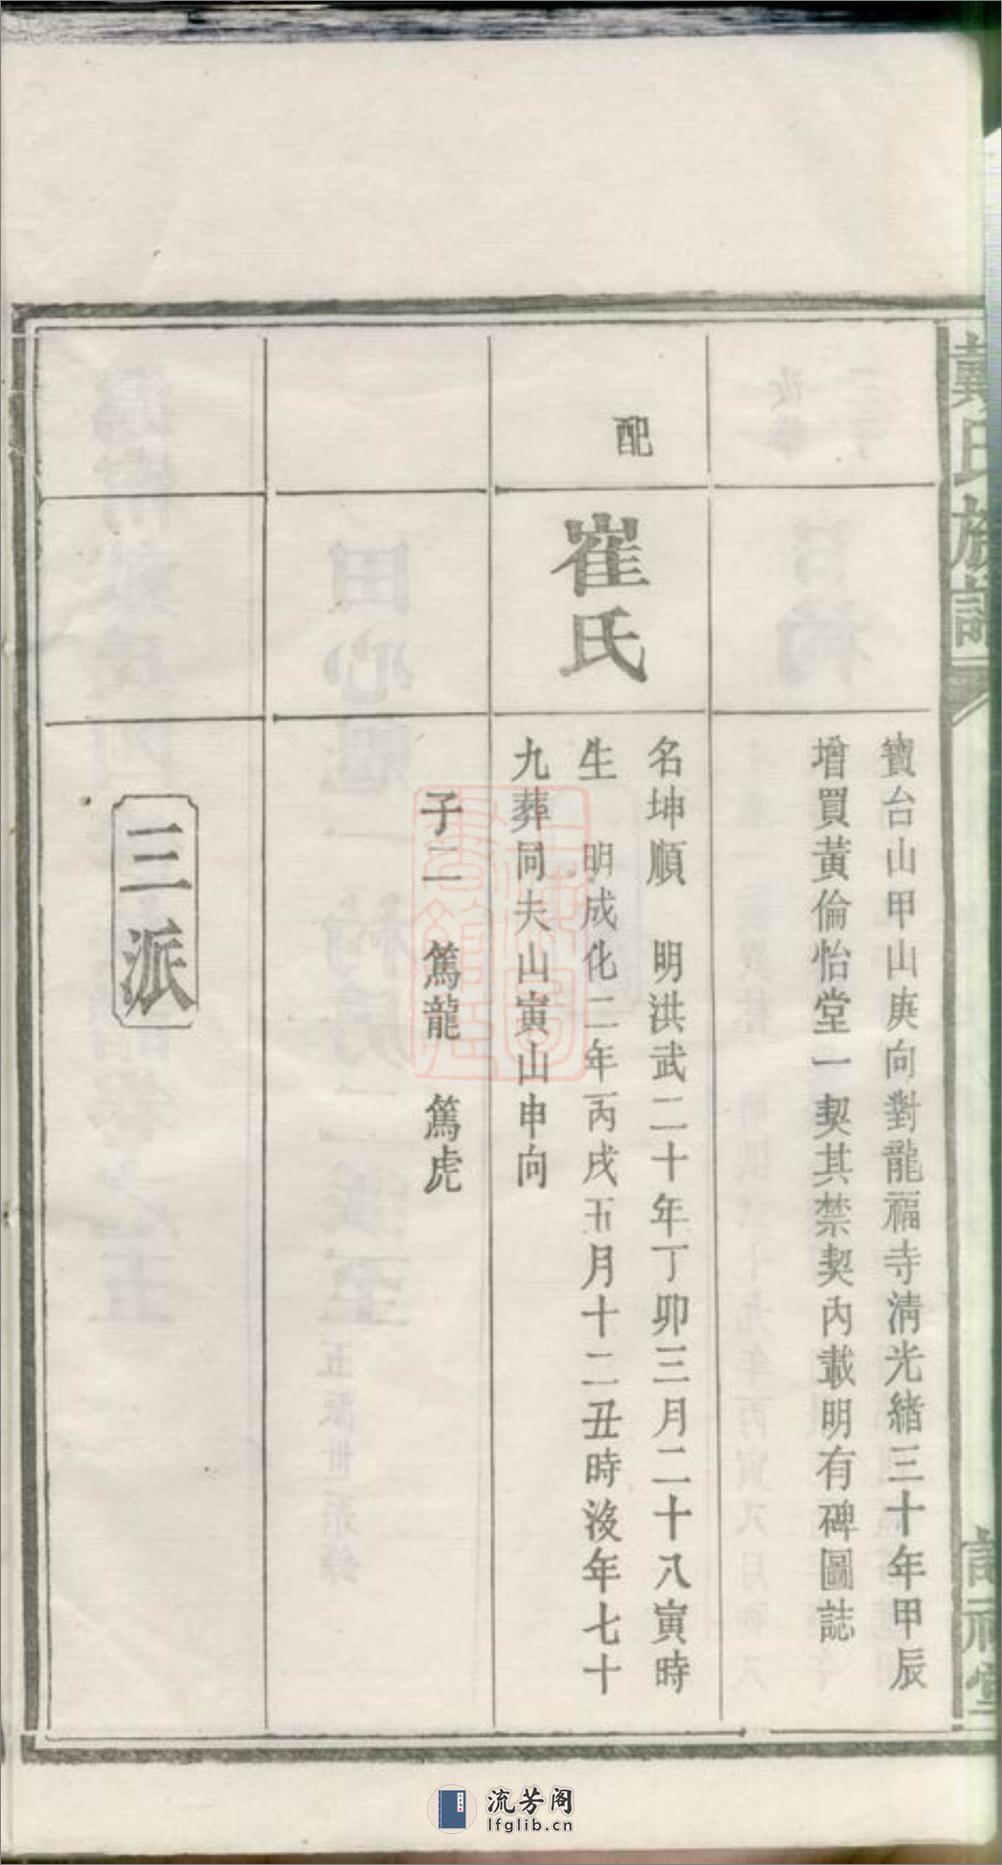 戴氏族譜
寶台山甲山庚向對龍福寺清光緒三十年甲辰
增買黃倫怡堂一契其禁契內載明有碑圖誌
配
崔氏
名坤順　明洪武二十年丁卯三月二十八寅時
生　明成化二年丙戌五月十二丑時沒年七十
九葬同夫山寅山申向
子二　篤龍　篤虎
三派
流芳阁
lfglib.cn